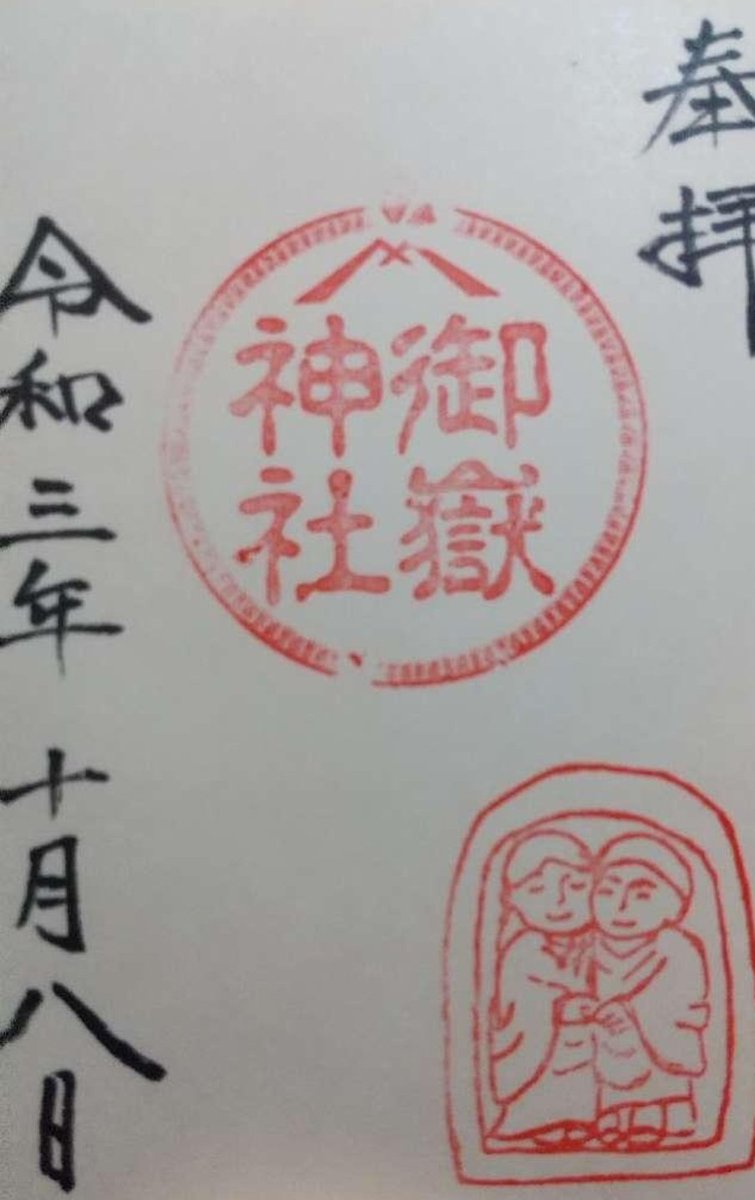 奉拝
御嶽
神社
令和三年十月八日